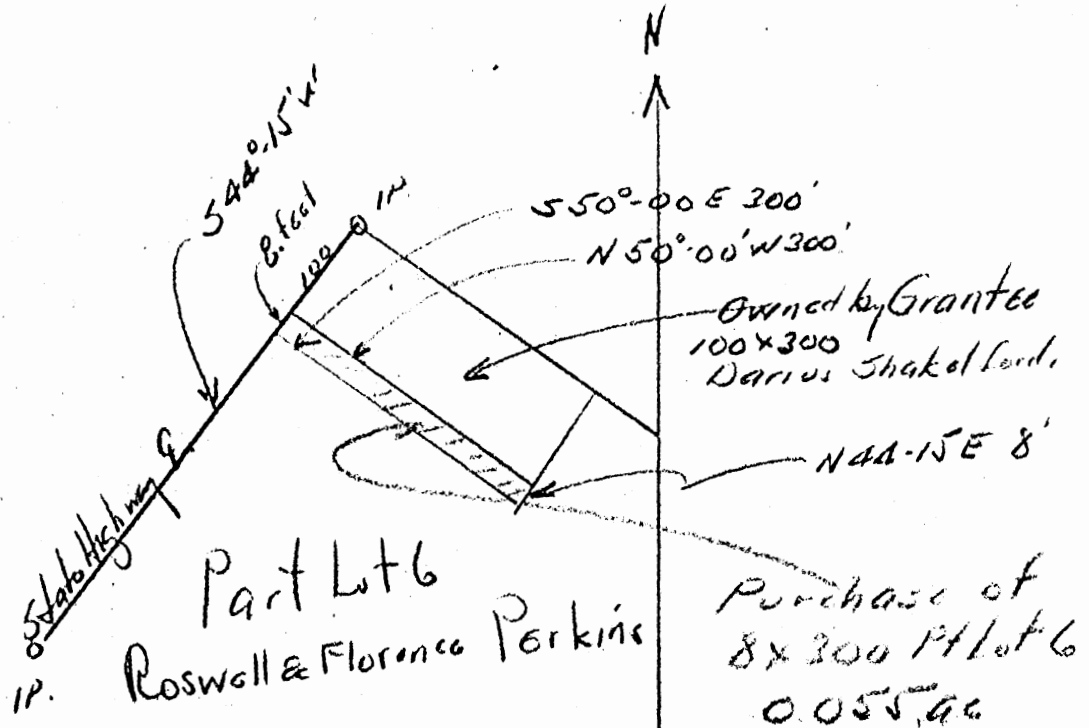 N
S44°-15'W
8.feet
100
IP.
S50°-00 E 300'
N50°-00'W300'
Owned by Grantee
100x300
Darius Shakelford.
N44-15E 8'
State Highway
IP.
Part Lot 6
Roswell & Florence Perkins
Purchase of
8x300 Pt Lot 6
0.055.ac